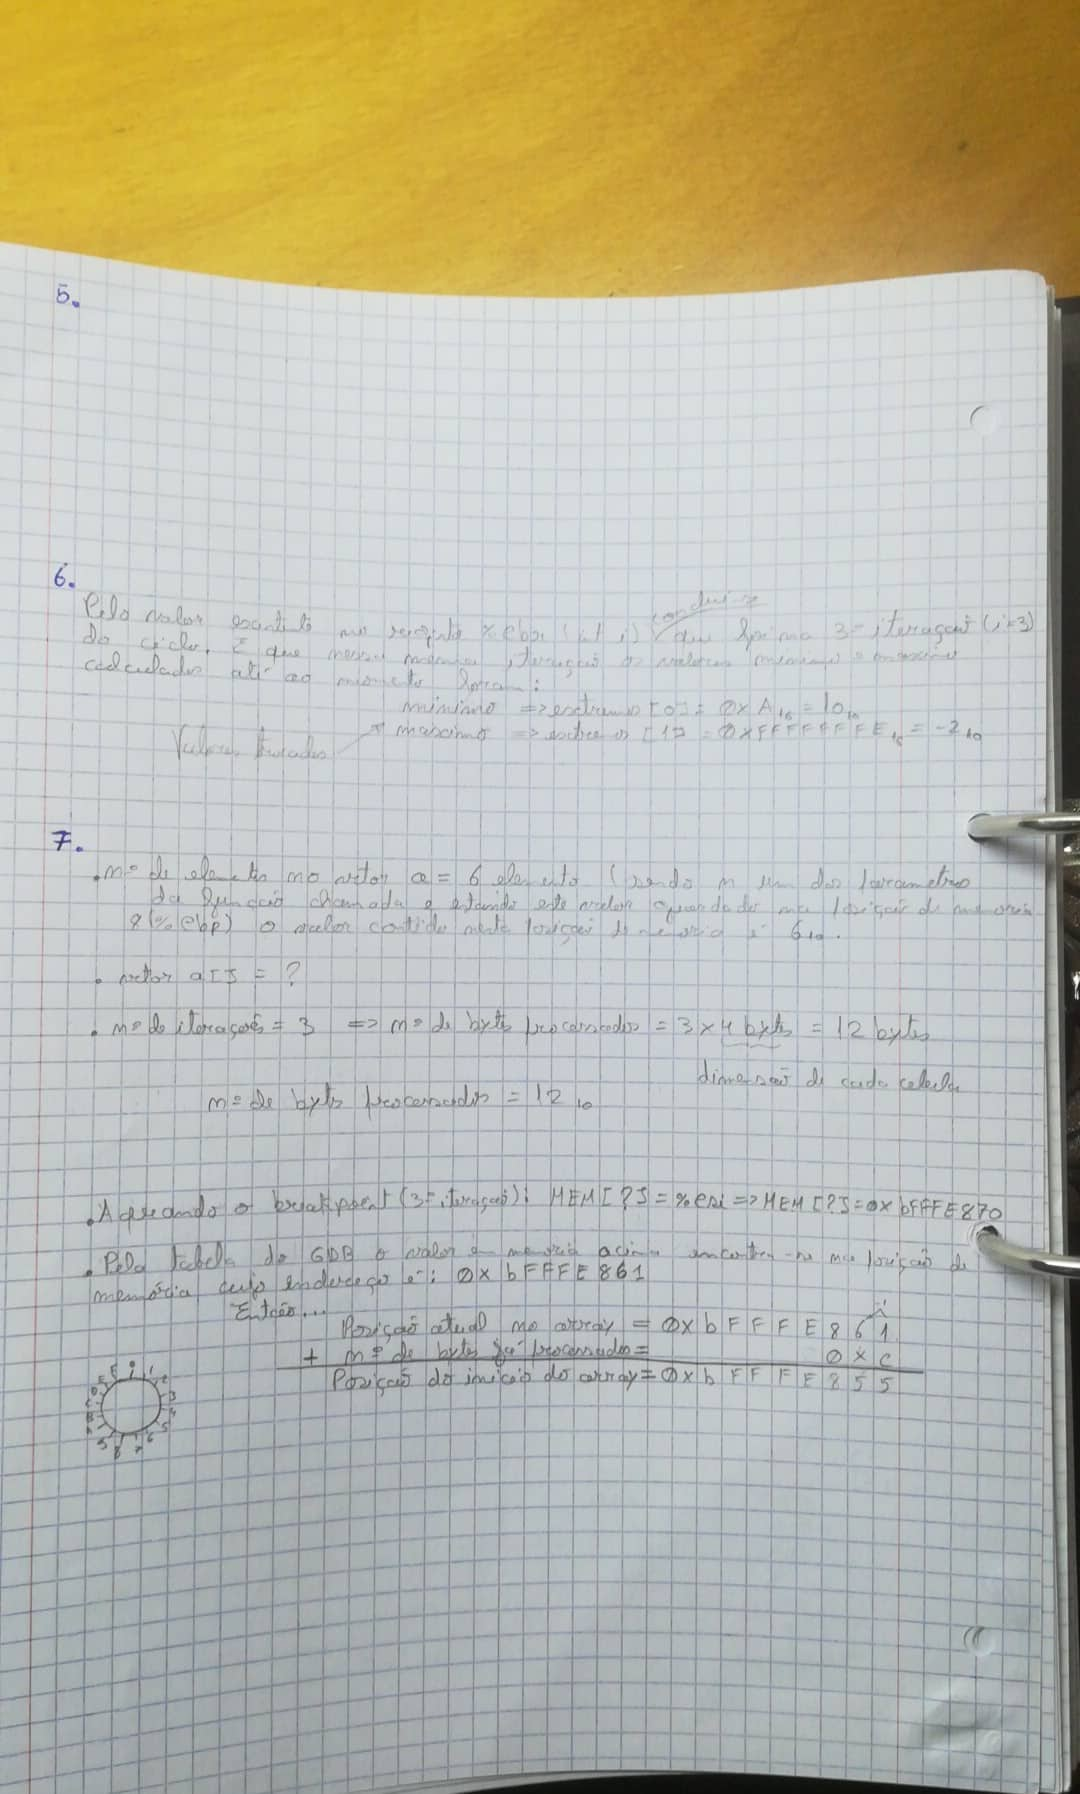 5.
6.
Pelo valor no registo %ebx (int i) conclui-se que 3ª iteração (i=3)
do ciclo. E que nessa mesma iteração os valores mínimo e máximo
calculados até ao momento foram:
minimo => extremos [0] = 0xA₁₆ = 10₁₀
Valores trocados maximo => [1] = 0xFFFFFFFE₁₆ = -2₁₀
7.
. nº de elementos no vetor a = 6 elemento (sendo n um dos parametros
da função chamada e estando este valor guardado na posição de memória
8(%ebp) o valor contido nesta posição de memória é 6₁₀.
. vetor a[] = ?
. nº de iterações = 3 => nº de bytes processados = 3 x 4 bytes = 12 bytes
dimensão de cada celula
nº de bytes processados = 12₁₀
. Aquando o breakpoint (3ª iteração): MEM[?] = %esi => MEM[?] = 0xbFFFE870
. Pela tabela do GDB o valor em memória acima encontra-se na posição de
memória cujo endereço é: 0xbFFFE861
Então...
Posição atual no array = 0xbFFFE861
+ nº de bytes já processados = 0xC
Posição do inicio do array = 0xbFFFE855
0 1 2 3 4 5 6 7 8 9 A B C D E F